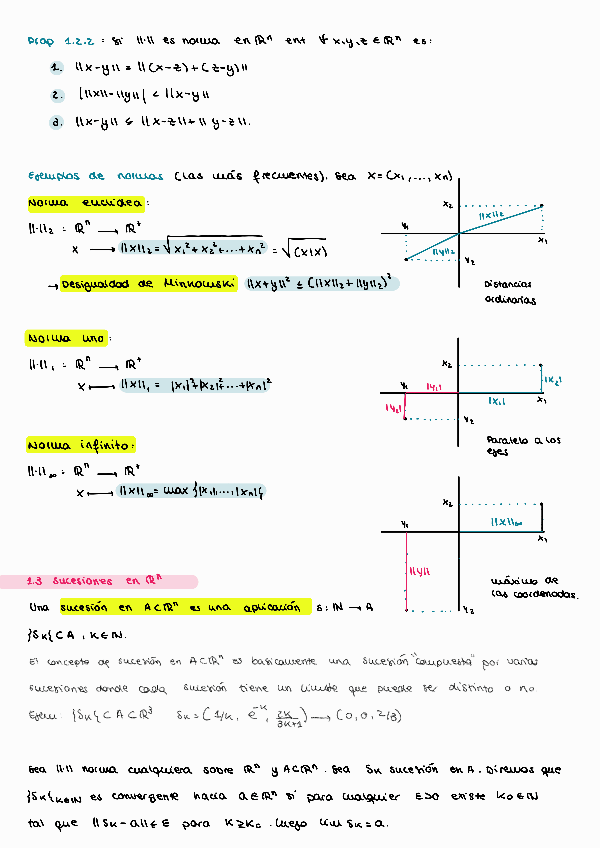 Prop 1.2.2 : Si ||·|| es norma en ℝⁿ ent ∀ x,y,z ∈ ℝⁿ es:
1. ||x-y|| = ||(x-z)+(z-y)||
2. | ||x||-||y|| | ≤ ||x-y||
3. ||x-y|| ≤ ||x-z||+||y-z||.
Ejemplos de normas (las más frecuentes). Sea x=(x₁,...,xn)
Norma euclídea:
||·||₂ : ℝⁿ → ℝ⁺
x → ||x||₂ = √x₁²+x₂²+...+xn² = √(x|x)
→ Desigualdad de Minkowski ||x+y||² ≤ (||x||₂+||y||₂)²
x₂ ||x||₂ y₁ x₁ ||y||₂ y₂
Distancias
ordinarias
Norma uno:
||·||₁ : ℝⁿ → ℝ⁺
x ↦ ||x||₁ = |x₁|²+|x₂|²+...+|xn|²
x₂ y₁ |y₁| |x₂| |y₂| |x₁| x₁ y₂
Paralelo a los
ejes
Norma infinito:
||·||∞ : ℝⁿ → ℝ⁺
x ↦ ||x||∞ = max {|x₁|,...,|xn|}
x₂ y₁ ||x||∞ x₁ ||y|| y₂
máximo de
las coordenadas.
1.3 Sucesiones en ℝⁿ
Una sucesión en A⊂ℝⁿ es una aplicación s: ℕ → A
{Sk} ⊂ A , k∈ℕ.
El concepto de sucesión en A⊂ℝⁿ es basicamente una sucesión "compuesta" por varias
sucesiones donde cada sucesión tiene un límite que puede ser distinto o no
Ejem: {Sk} ⊂ A ⊂ ℝ³ Sk = (1/k, e⁻ᵏ, 2k/3k+1) → (0,0,2/3)
Sea ||·|| norma cualquiera sobre ℝⁿ y A⊂ℝⁿ. Sea Sk sucesión en A. Diremos que
{Sk}k∈ℕ es convergente hacia a∈ℝⁿ si para cualquier ε>0 existe k₀∈ℕ
tal que ||Sk-a||<ε para k≥k₀. Luego lim Sk=a.